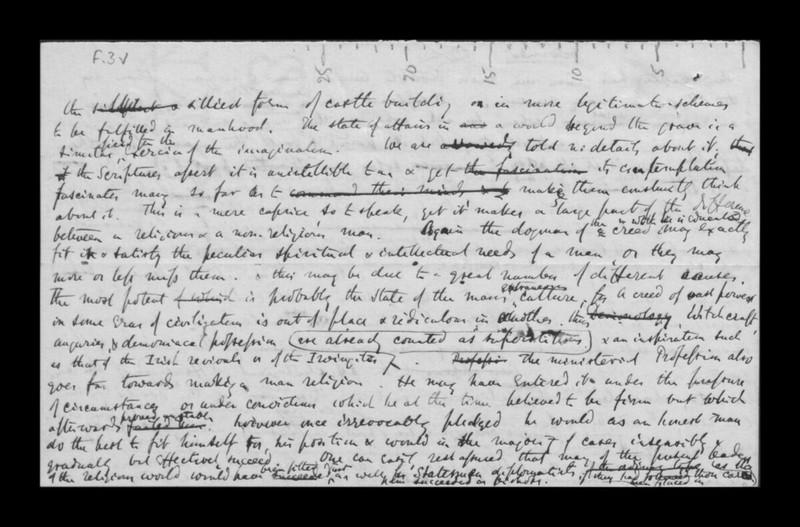 F. 3v
25 20 15 10 5
the silliest form of castle building or in more legitimate schemes
to be fulfilled in manhood. The state of affairs in a world beyond the grave is a
similar field for the exercise of the imagination. We are told no details about it,
the Scriptures assert it is unintelligible to us & yet the fascination its contemplation
fascinates many so far as to command their minds & to make them constantly think
about it. This is a mere caprice so to speak, yet it makes a large part of the difference
between a religious & a non-religious man. Again the dogmas of the creed in which he is educated may exactly
fit in & satisfy the peculiar spiritual & intellectual needs of a man, or they may
more or less miss them. & this may be due to a great number of different causes.
The most potent is probably the state of the man's culture, for a creed of vast power
in some eras of civilization is out of place & ridiculous in another, thus demonology, Witchcraft
auguries, & demoniacal possession (are already counted as superstitions) & an inspiration such
as that of the Irish revivals or of the Irvingites. The ministerial Profession also
goes far towards making a man religious. He may have entered it under the pressure
of circumstances or under convictions which he at the time believed to be firm but which
afterwards proved unstable however once irrevocably pledged he would as an honest man
do the best to fit himself for his position & would in the majority of cases insensibly &
gradually but effectively succeed. One can easily rest assured that many of the present leaders
of the religious world would have been fitted just as well for Statesmen, diplomatists, if they had followed those careers
have succeeded as been placed in